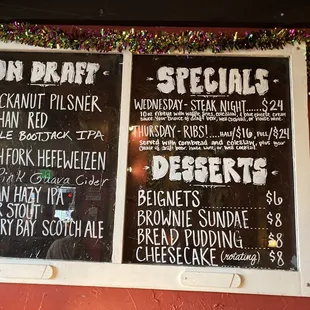 ON DRAFT
CKANUT PILSNER
HAN RED
LE BOOTJACK IPA
FORK HEFEWEIZEN
Pink Guava Cider
AN HAZY IPA
R STOUT
RY BAY SCOTCH ALE
SPECIALS
WEDNESDAY - STEAK NIGHT......$24
THURSDAY - RIBS!.... HALF/$16, FULL/$24
Served with cornbread and coleslaw, plus your
choice of draft beer, house wine, or well cocktail
DESSERTS
BEIGNETS $6
BROWNIE SUNDAE $8
BREAD PUDDING $8
CHEESECAKE (rotating) $8